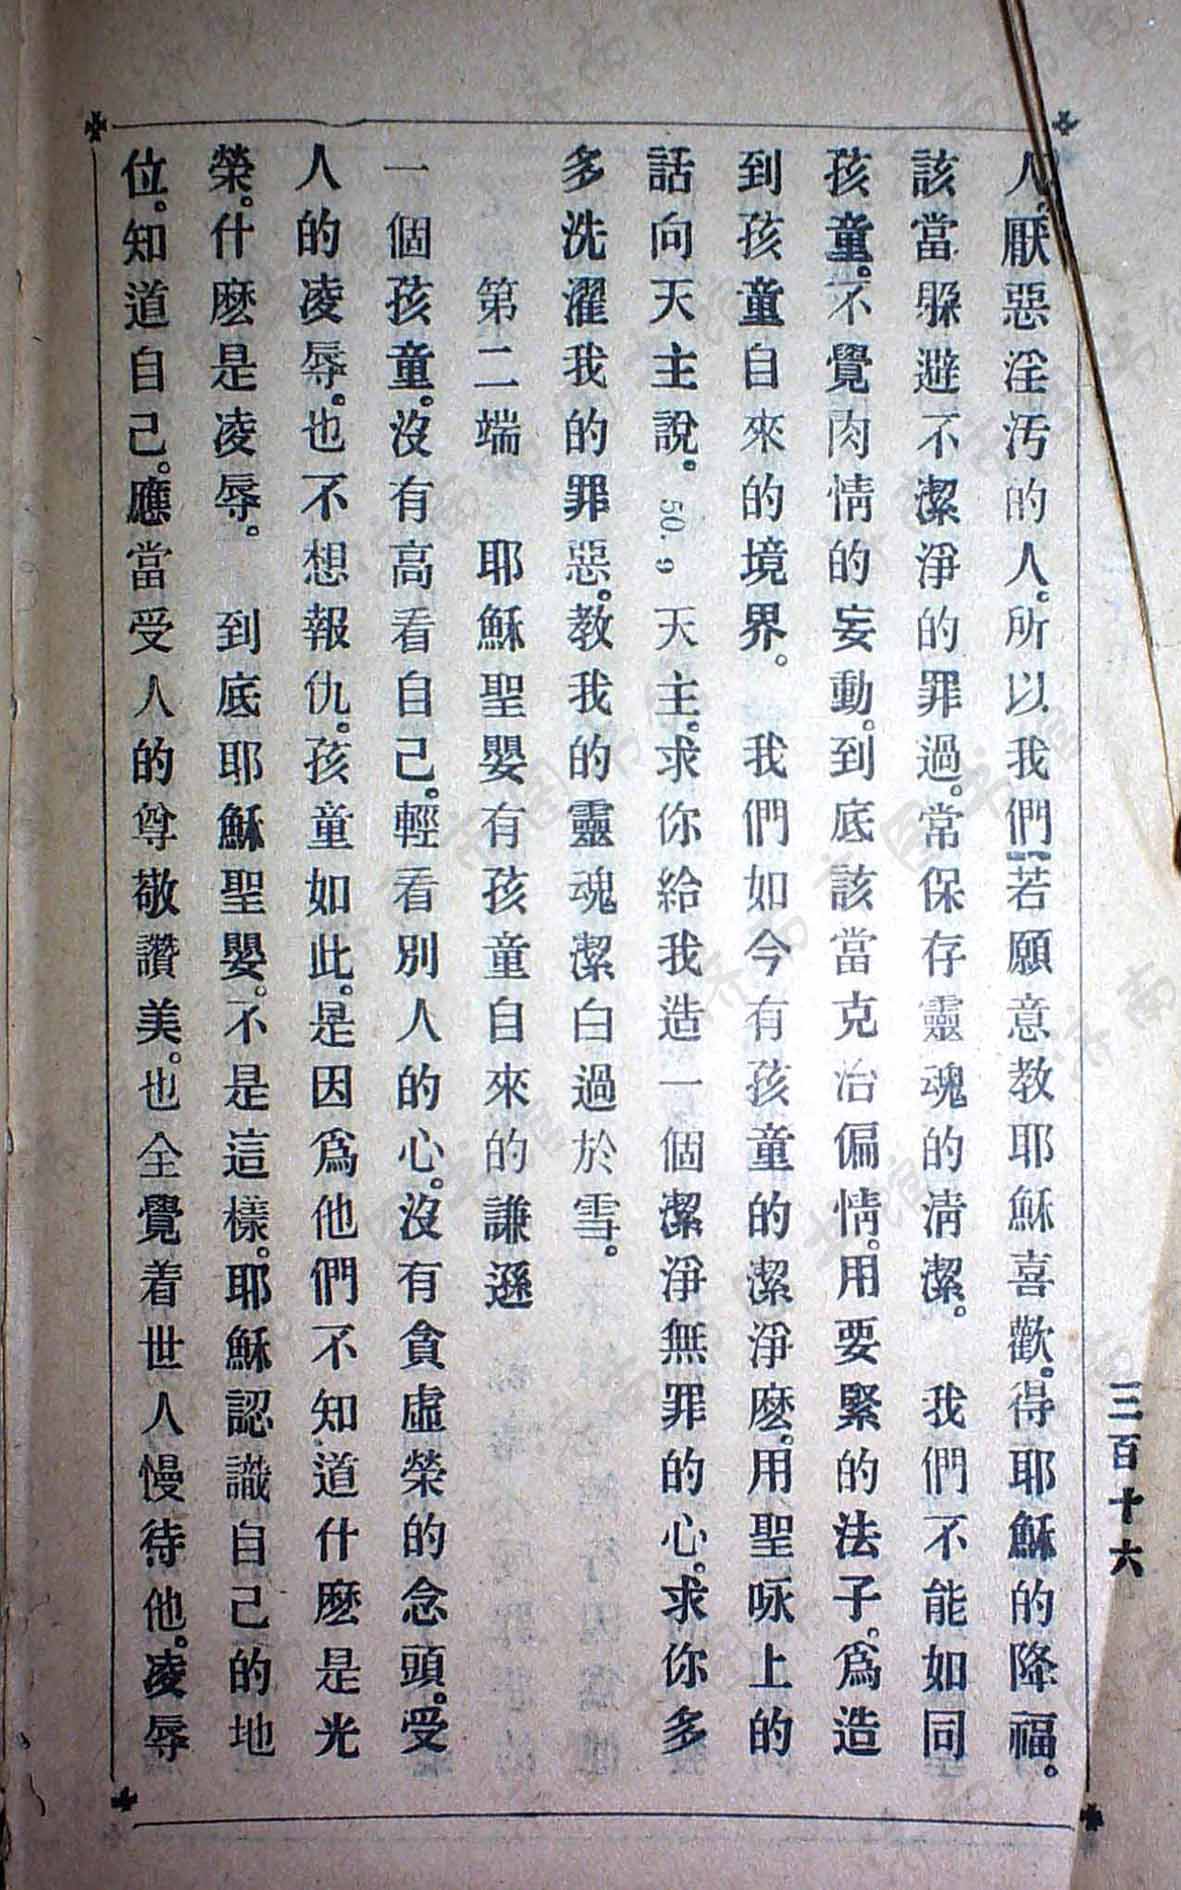 三百十六
人。厭惡淫汚的人。所以我們若願意教耶穌喜歡。得耶穌的降福。
該當躱避不潔淨的罪過。常保存靈魂的淸潔。　我們不能如同
孩童。不覺肉情的妄動。到底該當克治偏情。用要緊的法子。爲造
到孩童自來的境界。　我們如今有孩童的潔淨麽。用聖咏上的
話向天主說。50. 9 天主。求你給我造一個潔淨無罪的心。求你多
多洗濯我的罪惡。教我的靈魂潔白過於雪。
第二端　耶穌聖嬰有孩童自來的謙遜
一個孩童。沒有高看自己。輕看別人的心。沒有貪虛榮的念頭。受
人的凌辱。也不想報仇。孩童如此。是因爲他們不知道什麽是光
榮。什麽是凌辱。　到底耶穌聖嬰。不是這樣。耶穌認識自己的地
位。知道自己。應當受人的尊敬讚美。也全覺着世人慢待他。凌辱